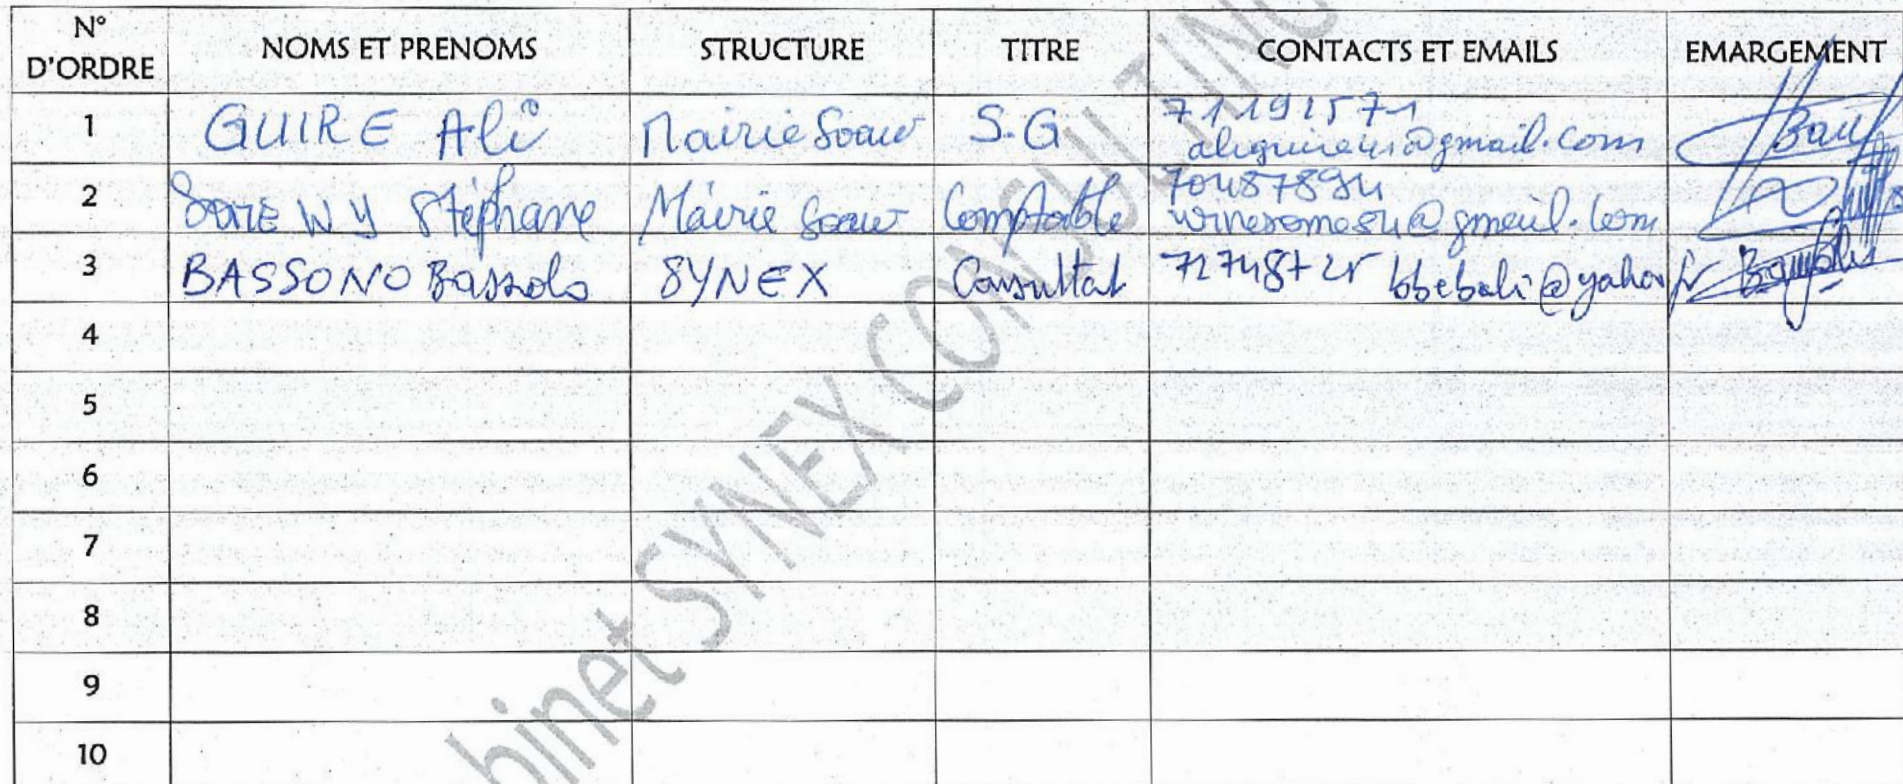 N° D'ORDRE NOMS ET PRENOMS STRUCTURE TITRE CONTACTS ET EMAILS EMARGEMENT
1 GUIRE Ali Mairie Soaw S.G 71191571
@gmail.com
2 W Y Stéphane Mairie Soaw Comptable 70487894
@gmail.com
3 BASSONO Bassolo SYNEX Consultat bbebali@yahoo.fr
4
5
6
7
8
9
10
binet SYNEX CONSULTING